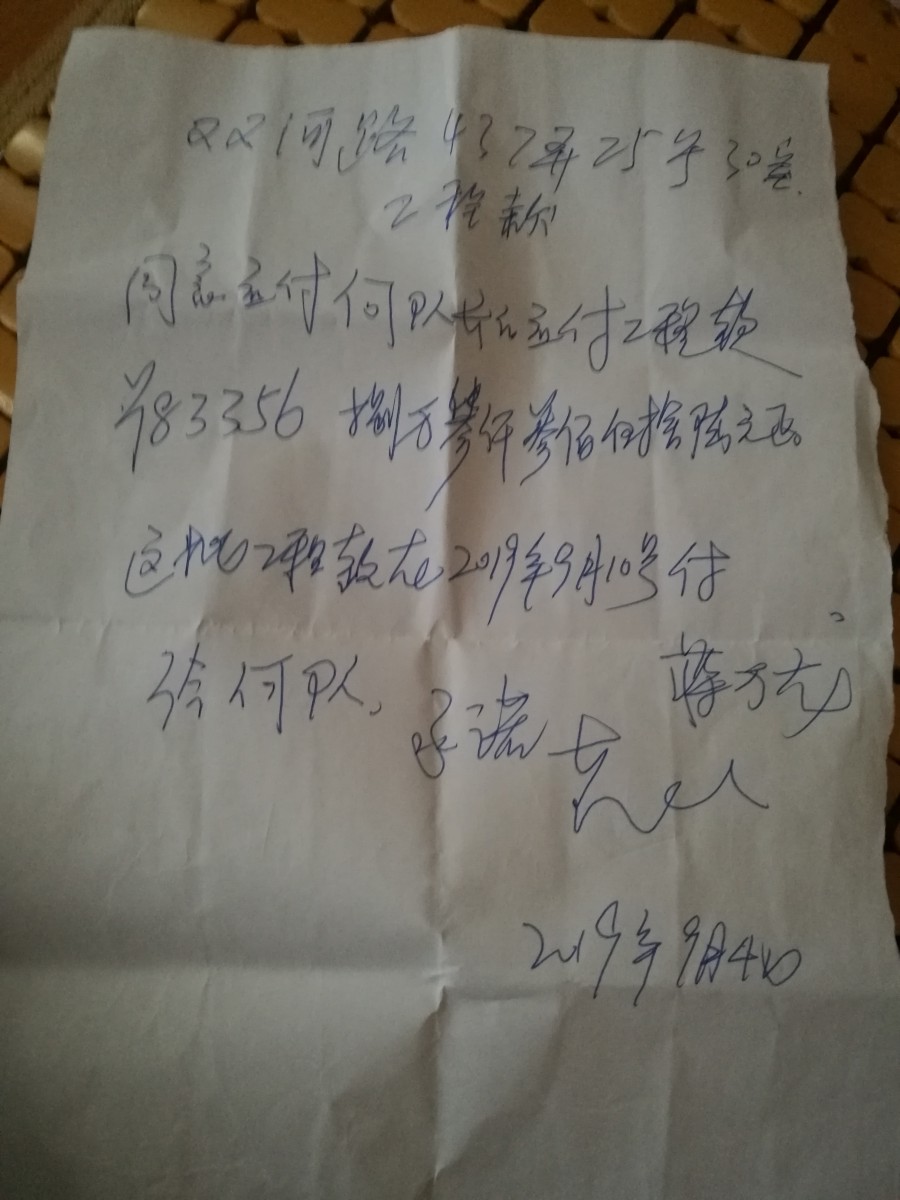 双双河路437弄25号30室
工程款
同意应付何队长应付工程款
¥83356 捌万叁仟叁佰伍拾陆元正
这批工程款在2019年9月10号付
给何队、
承诺
蒋万龙
2019年9月4日